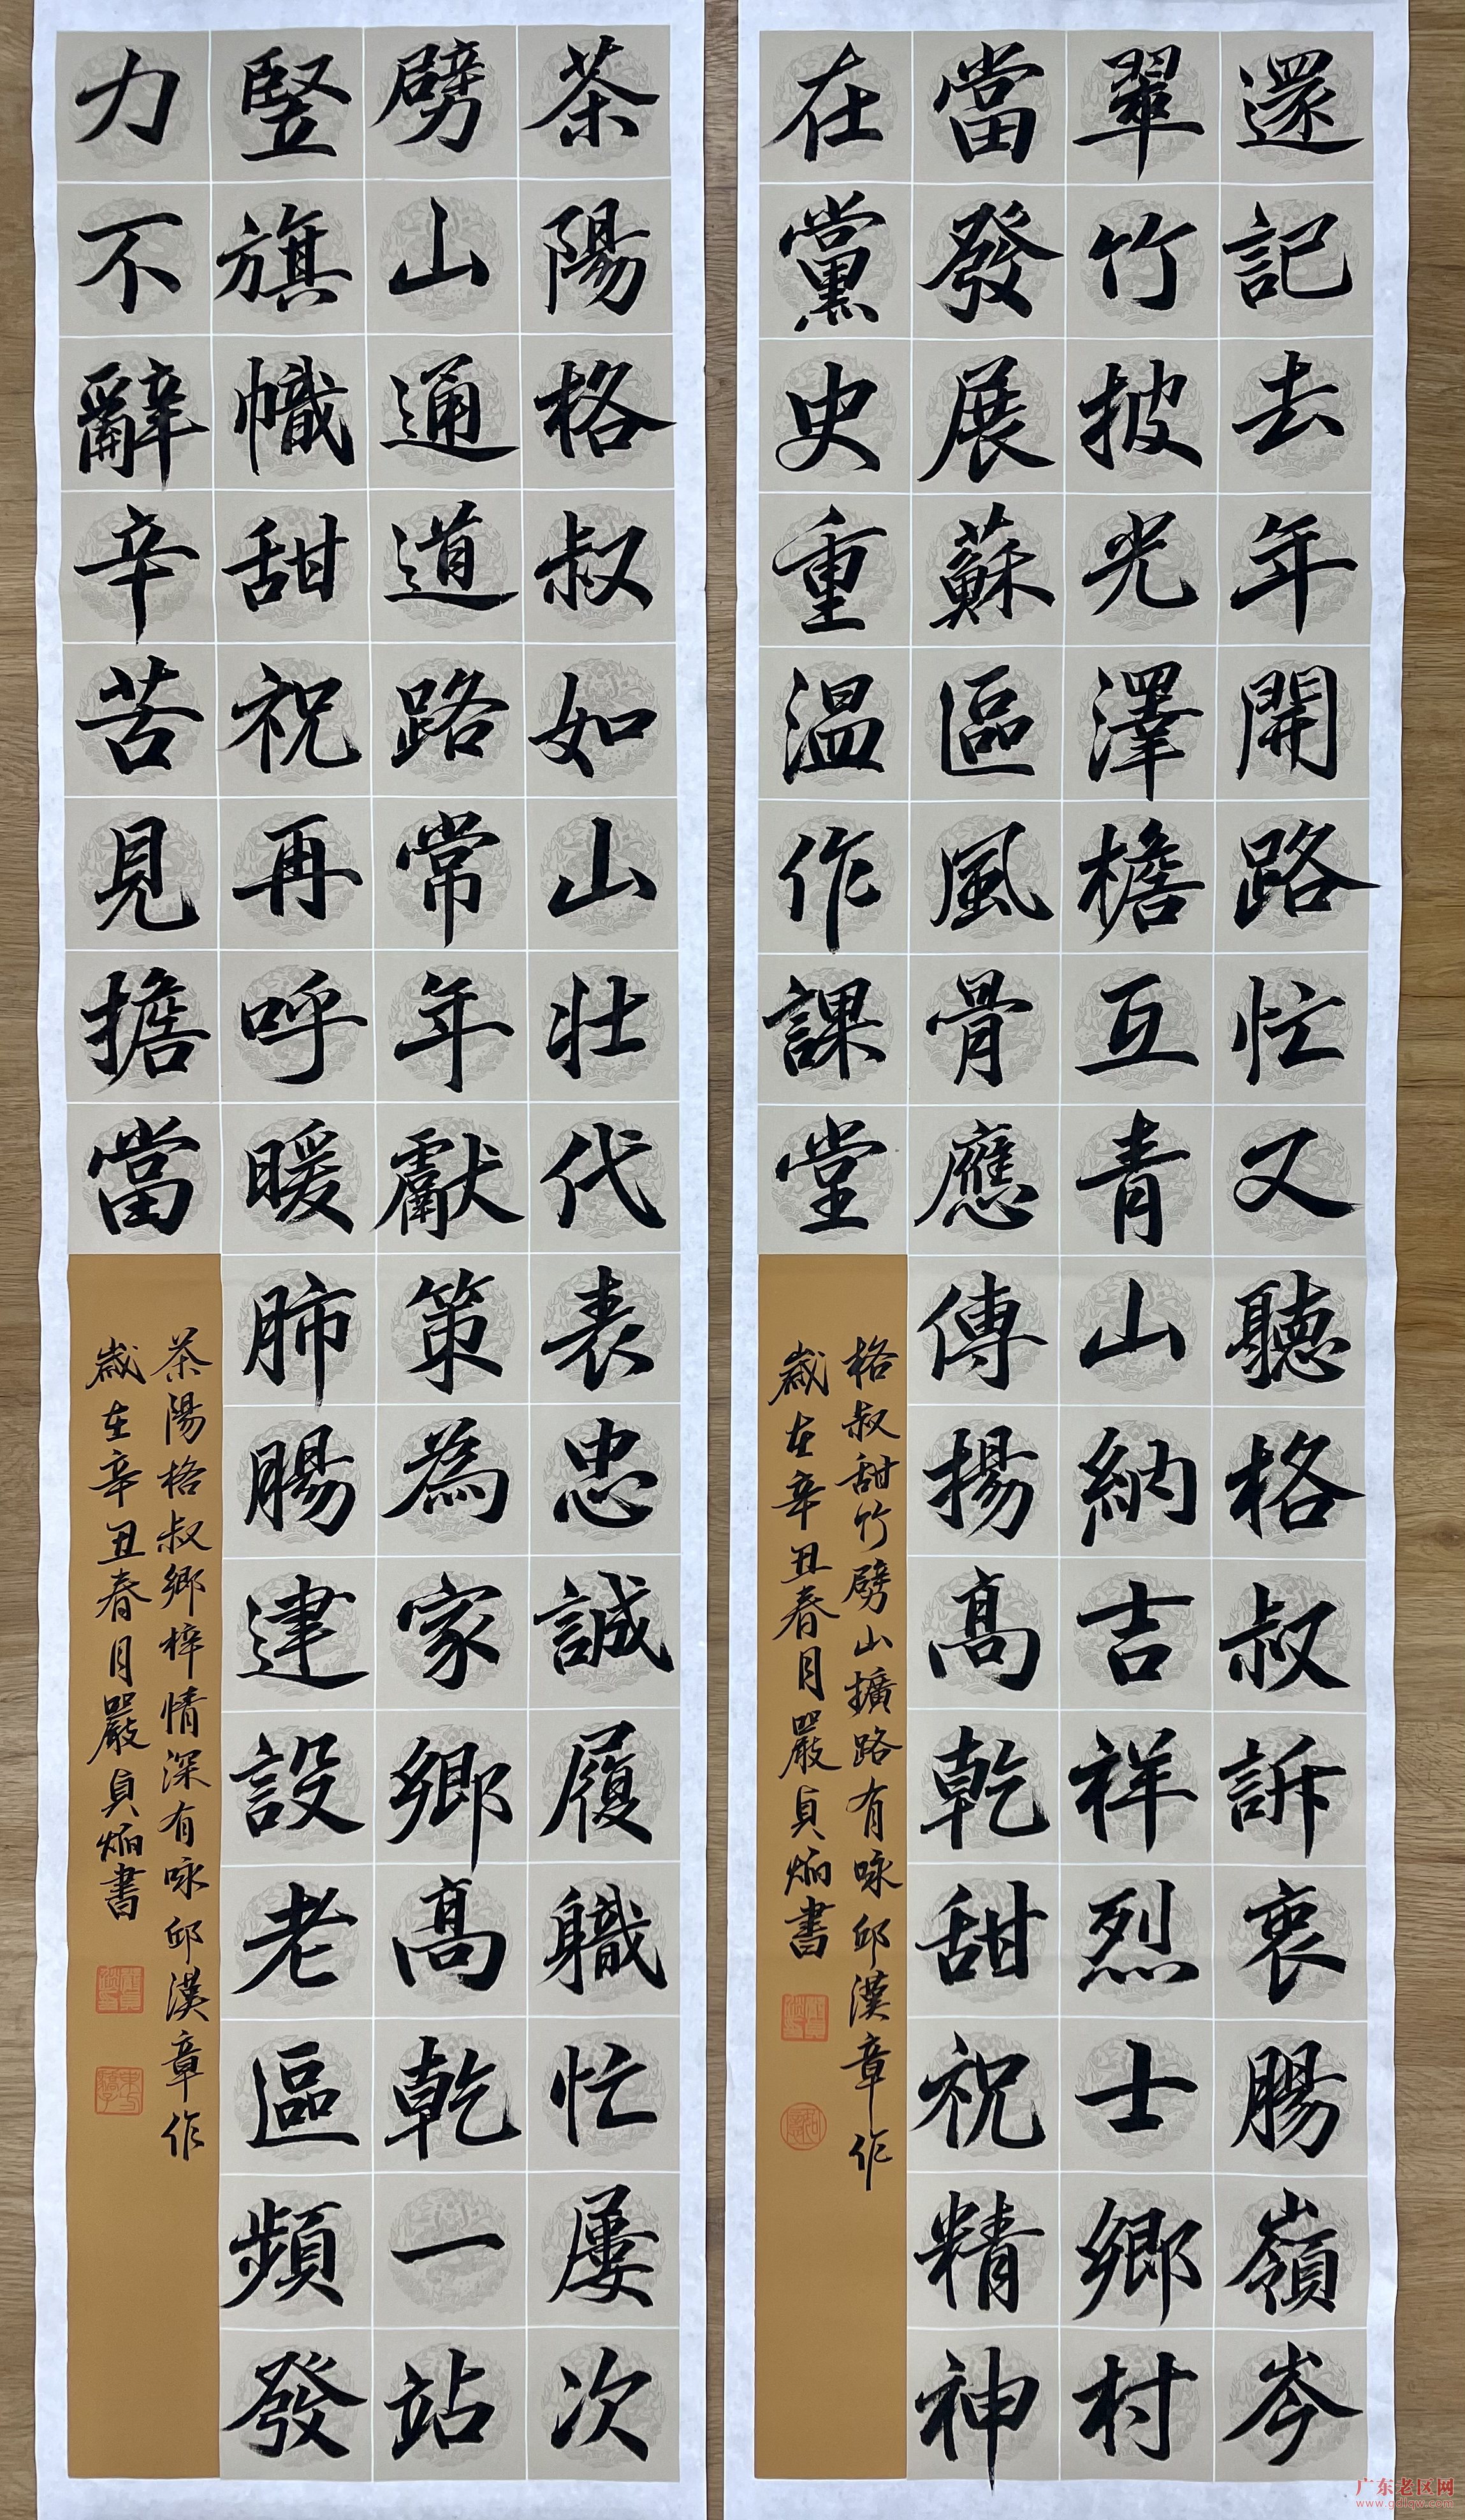 還記去年開路忙又聽格叔訴衷腸嶺岑
翠竹披光澤檐互青山納吉祥烈士鄉村
當發展蘇區風骨應傳揚高乾甜祝精神
在黨史重溫作課堂
格叔甜竹劈山擴路有咏邱漢章作
歲在辛丑春月嚴貞炳書
茶陽格叔如山壯代表忠誠履職忙屢次
劈山通道路常年獻策為家鄉高乾一站
竪旗幟甜祝再呼暖肺腸建設老區頻發
力不辭辛苦見擔當
茶陽格叔鄉梓情深有咏邱漢章作
歲在辛丑春月嚴貞炳書
广东老区网
www.gdlqw.com